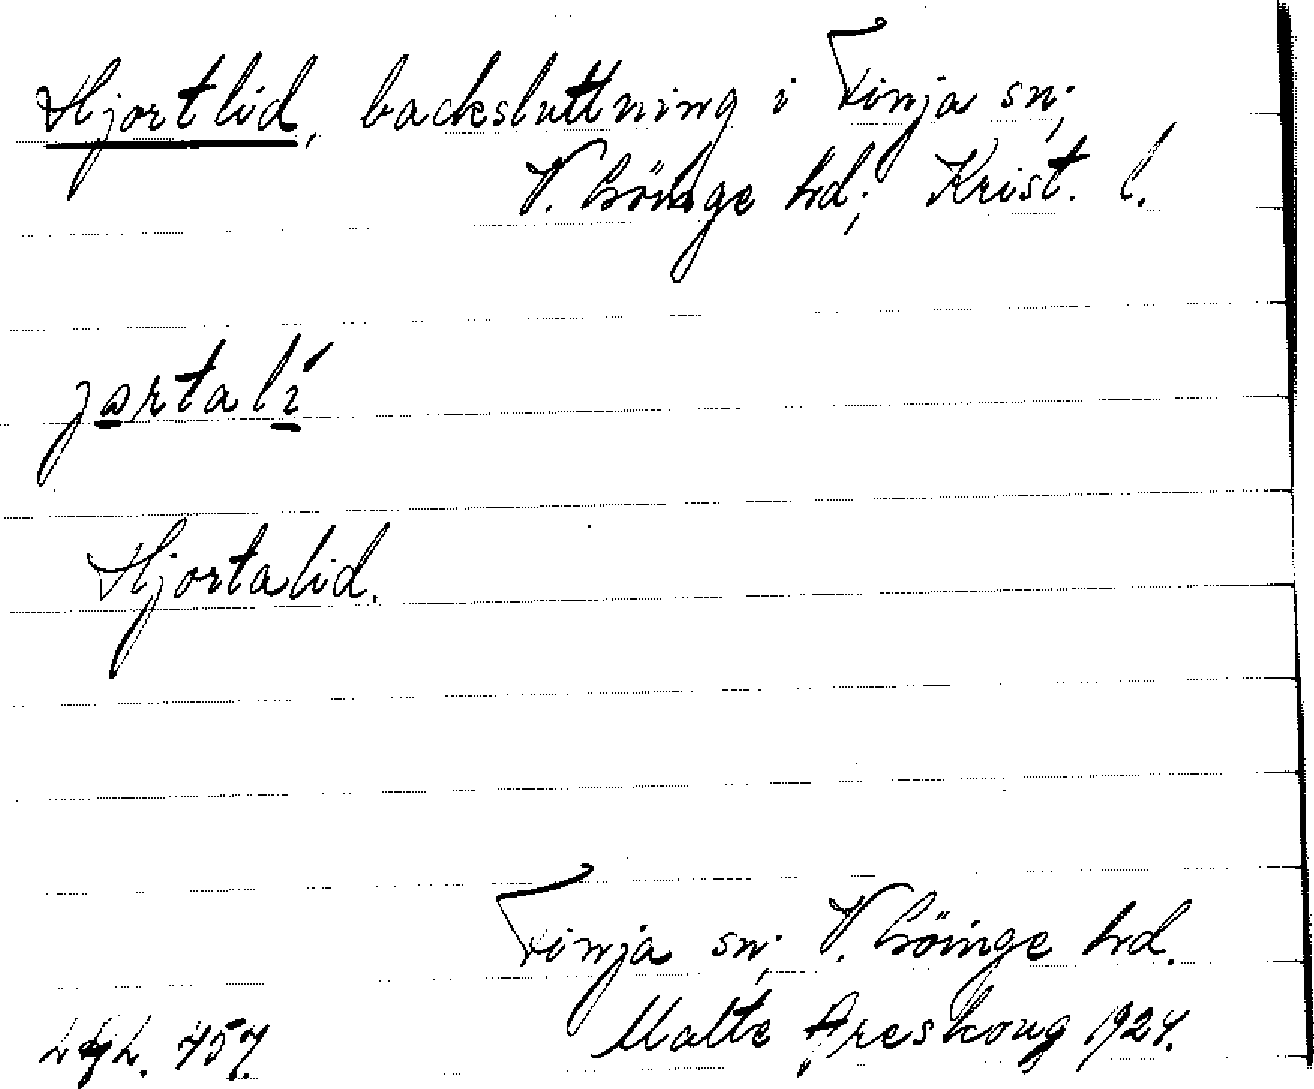 Hjortlid, backsluttning i Finja sn;
V. Göinge hd; Krist. l.
jortalí
Hjortalid.
Finja sn; V. Göinge hd.
Malte Areskoug 1924.
757.